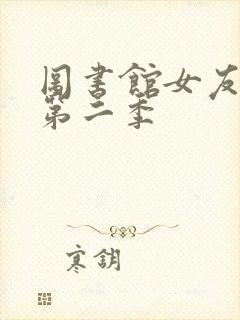 圖書館女友
第二季
寒鈅